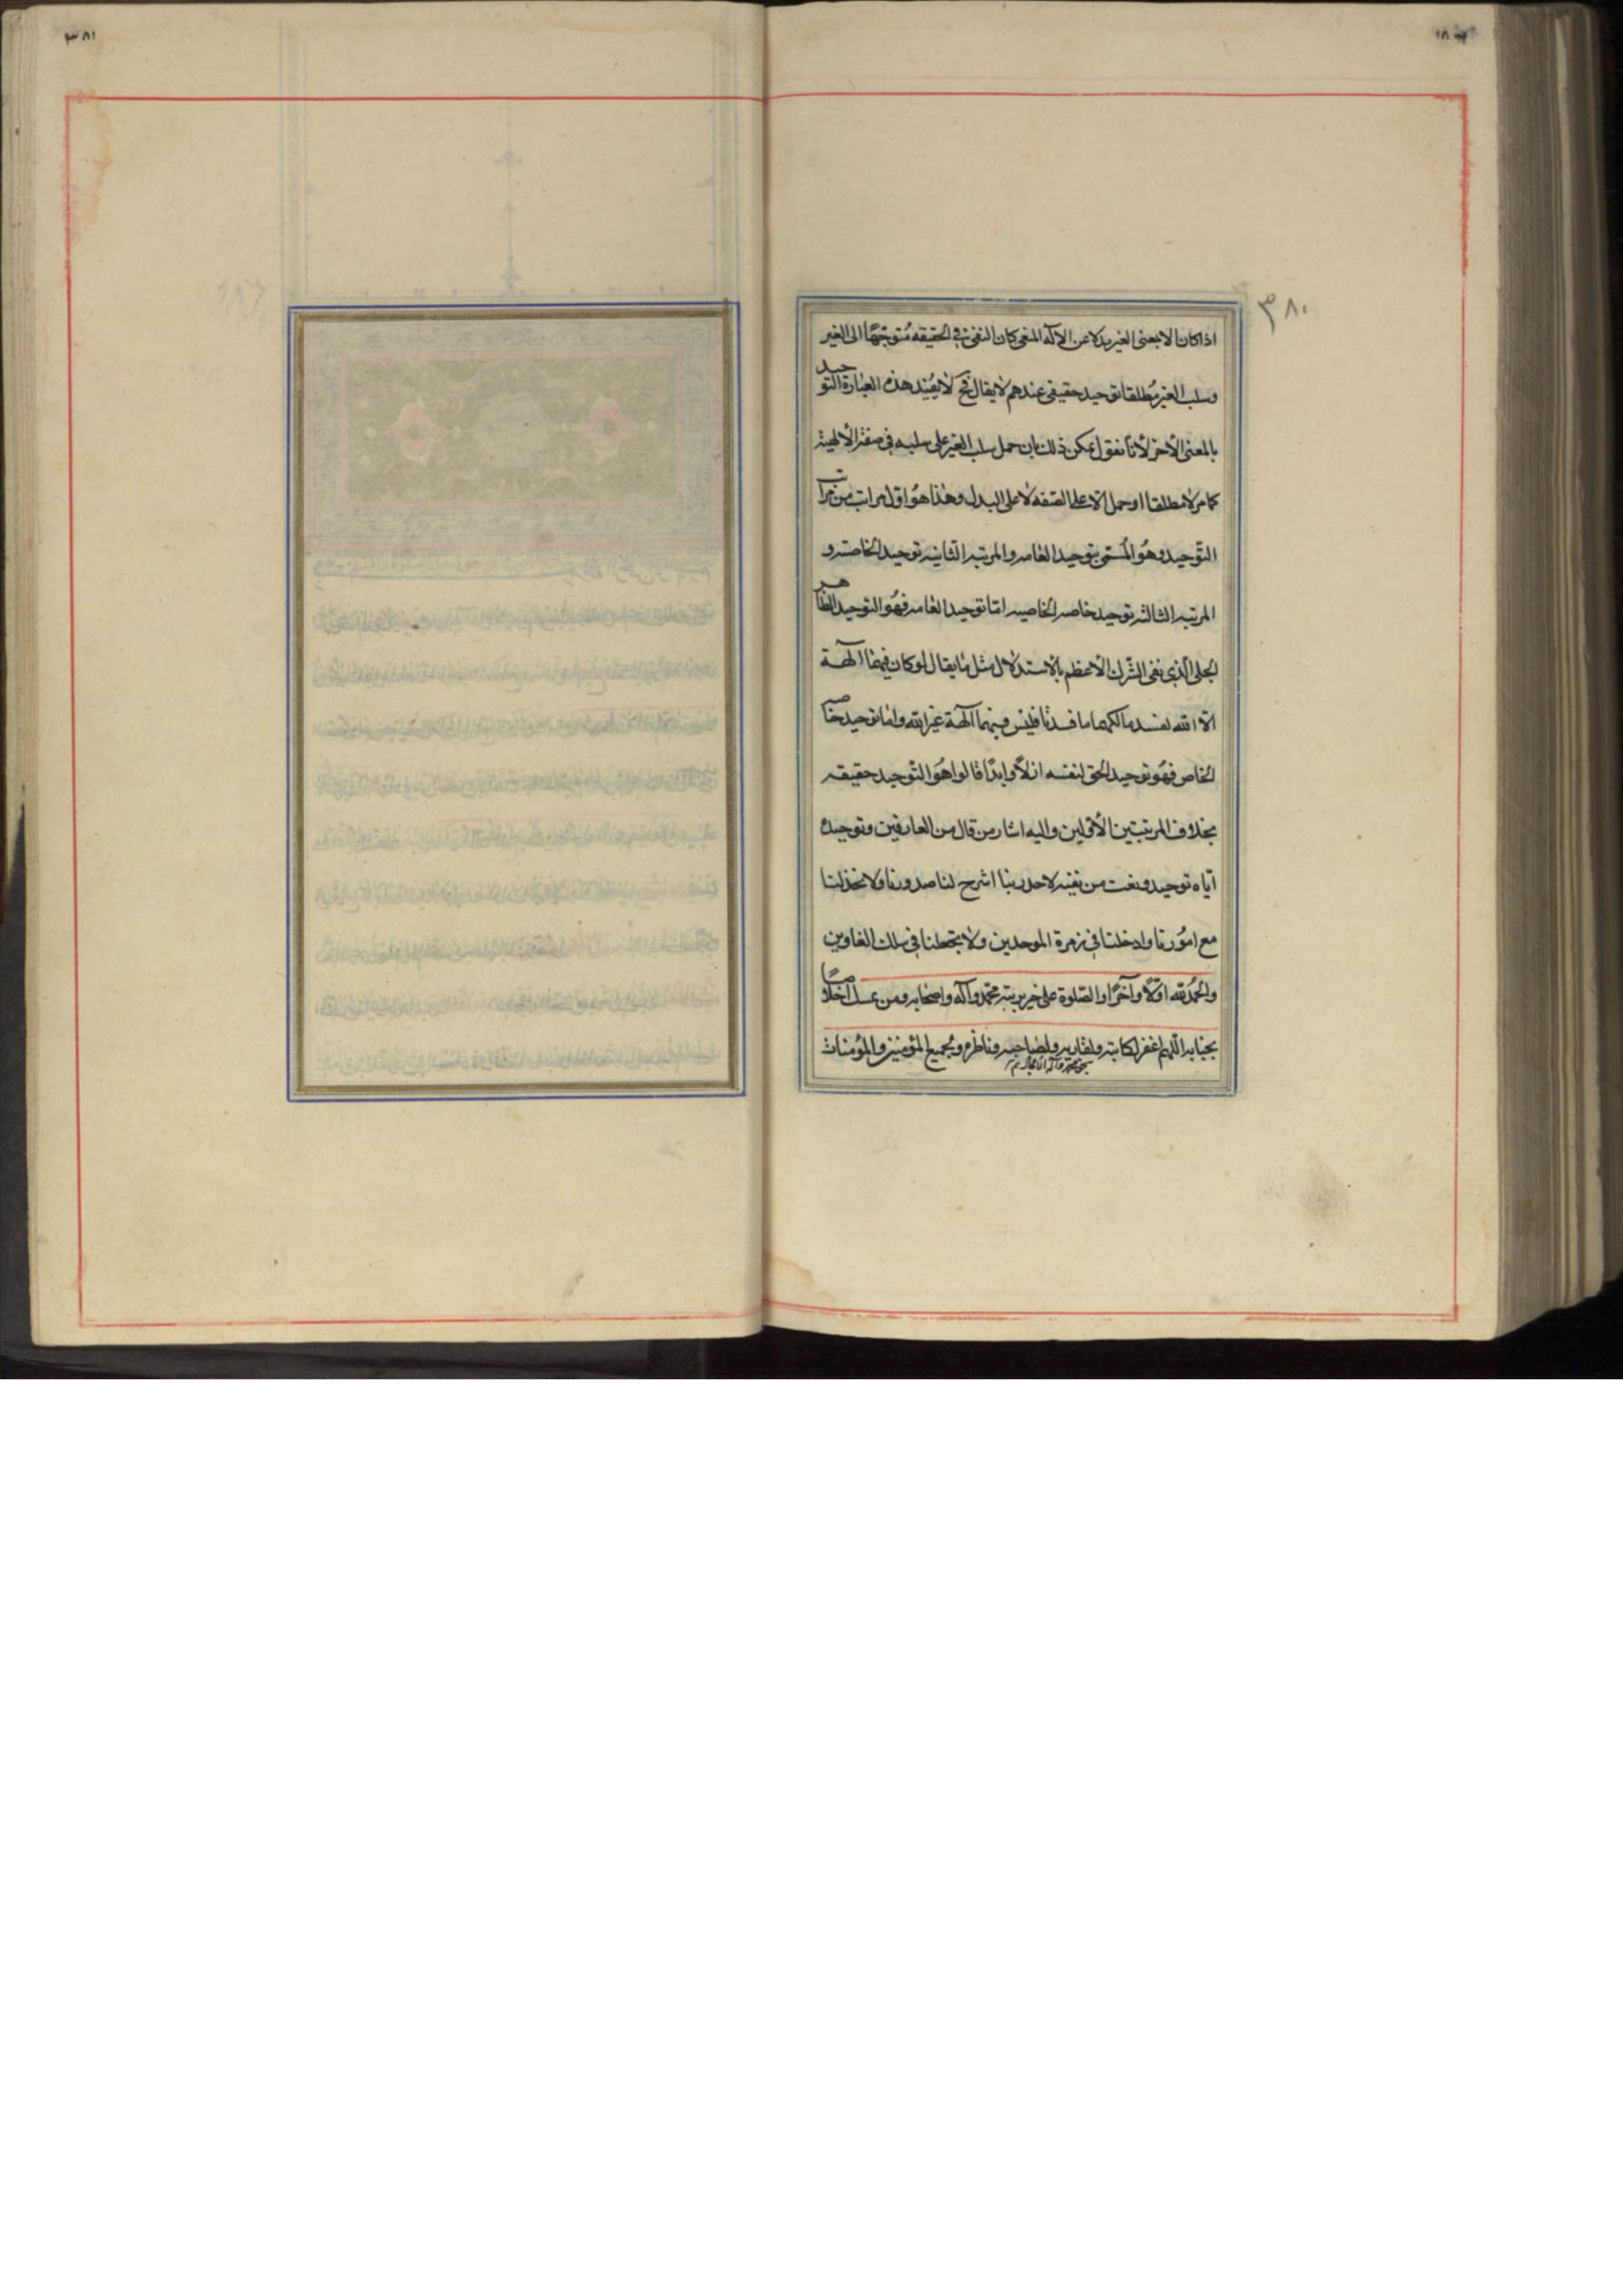 ٣٨٠
اذا كان الا بمعنى الغير بدلا عن الاله المنفى كان النفى فى الحقيقه مُتوجّهًا الى الغير
وسلب الغير مُطلقا توحيد حقيقى عندهم لا يقال فح لا يُفيد هذه العبارة التوحيد
بالمعنى الأخر لأنا نقول يمكن ذلك بان حمل سلب الغير على سلبه فى صفة الألهية
كما مر لا مطلقا او حمل الا على الصّفه لا على البدل وهذا هُو اوّل مراتب من مراتب
التّوحيد وهُو المُسمّى بتوحيد العامه والمرتبه الثانيه توحيد الخاصه و
المرتبه الثالثه توحيد خاصه الخاصه امّا توحيد العامه فهُو التوحيد الظاهر
الجلى الّذى نفى الشّرك الأعظم بالاستدلال مثل ما يقال لو كان فيهما الهة
الّا الله لفسدتا لكنهما ما فسدتا فليس فيهما آلهة غير الله وامّا توحيد خاص
الخاص فهُو توحيد الحق لنفسه ازلًا وابدًا قالوا هُو التّوحيد حقيقه
بخلاف المرتبتين الأوّلين واليه اشار من قال من العارفين وتوحيده
ايّاه توحيده ونعت من نفيه لاحد ربنا اشرح لنا صدورنا ولا تخذلنا
مع امُورنا وادخلنا فى زمرة الموحدين ولا تجعلنا فى سلك الغاوين
والحمدُ لله اوّلًا وآخرًا والصّلوة على خير بريته محمّد وآله واصحابه ومن اخلاصًا
بجنابه اللّهم اغفر لكاتبه ولقاريه ولصاحبه وناظره ولجميع المؤمنين والمؤمنات
بحق محمد وآله الامجاد
٣٨١